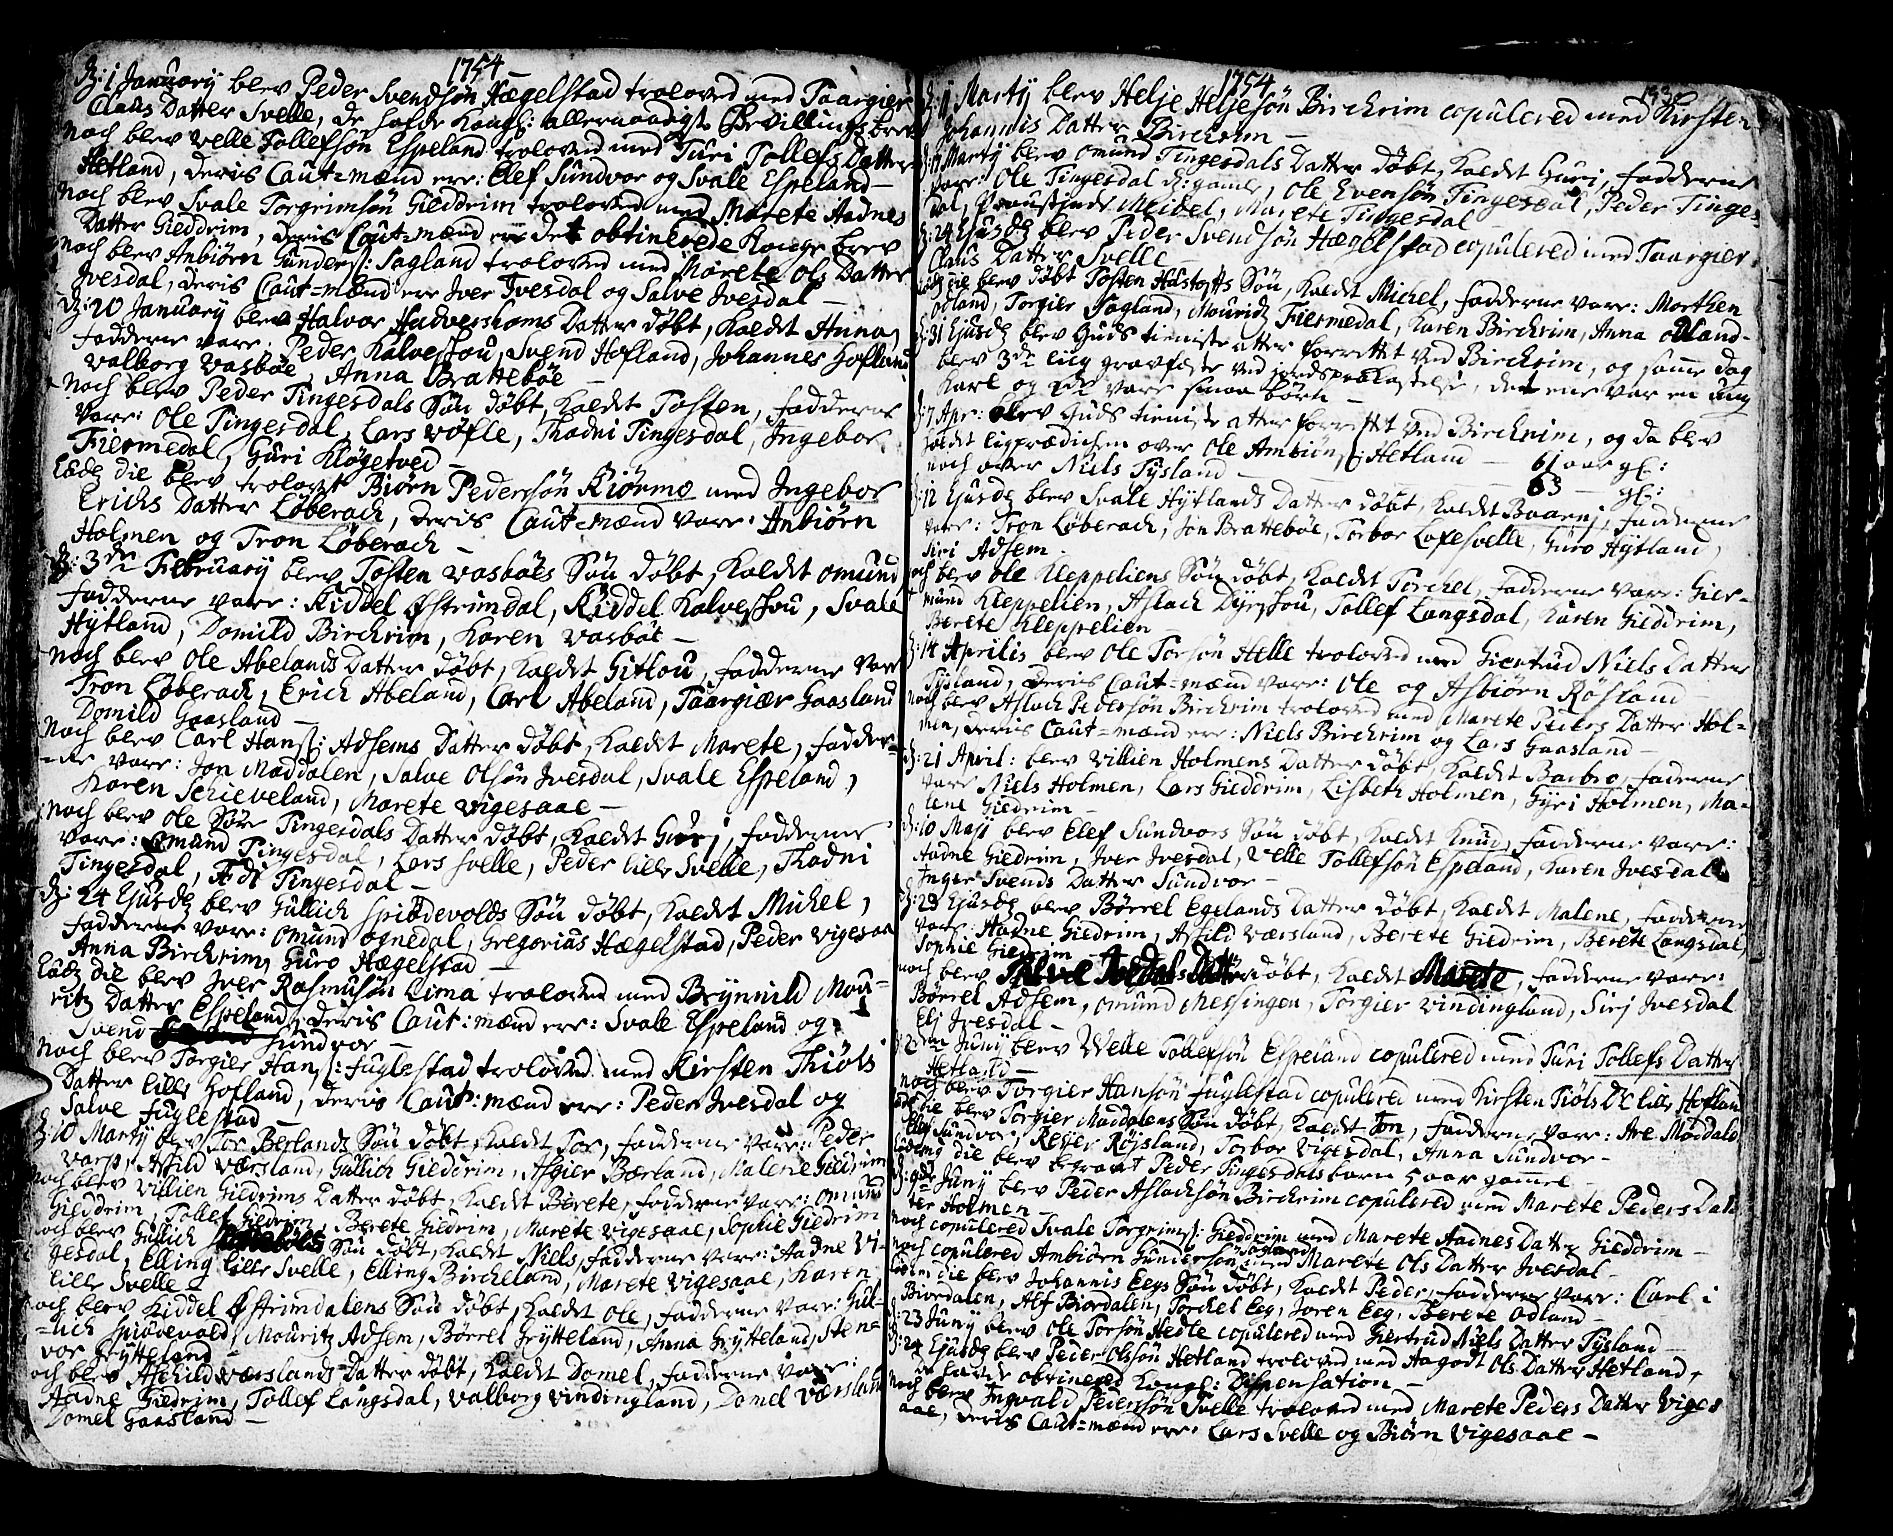 1754
d: 1 Januarij blev Peder Svendsøn Hægelstad troloved med Taargier
Claus Datter Svelle, de hafde Kongl: allernaadigst Bevillings brev
Noch blev Velle Tollefsøn Espeland troloved med Turi Tollefs Datter
Hetland, deris Caut=mænd ere: Elef Sundvor og Svale Espeland —
Noch blev Svale Torgrimsøn Gieddrim troloved med Marete Aadnes
Datter Gieddrim, deris Caut=mænd ere det obtinerede Konge brev
Noch blev Anbiørn Gunders: Sagland troloved med Marete Ols Datter
Jvesdal, deris Caut=mænd ere Jver Jvesdal og Salve Jvesdal —
d: 20 Januarij blev Halvor Hadvershoms Datter døbt, kaldet Anna,
fadderne vare: Peder Kalveshou, Svend Hofland, Johannes Hofland
Valborg Vasbøe, Anna Brattebøe —
Noch blev Peder Tingesdals Søn døbt, kaldet Tosten, fadderne
vare: Ole Tingesdal, Lars Røfle, Thadni Tingesdal, Ingebor
Fiermedal, Guri Kløgetved —
Eodem die blev trolovet Biørn Pedersøn Kiørmo med Ingebor
Erichs Datter Løberach, deris Caut=mænd vare: Anbiørn
Holmen og Tron Løberach —
d: 3die February blev Tosten Vasbøes Søn døbt, kaldet Omund
fadderne vare: Kiddel Østrimdal, Kiddel Kalveshou, Svale
Hÿtland, Domild Birchrim, Karen Vasbøe —
Noch blev Ole Abelands Datter døbt, kaldet Gitlou, fadderne vare
Tron Løberach, Erich Abeland, Carl Abeland, Taargiær Gaasland
Domild Gaasland —
Noch blev Carl Hans: Adsems Datter døbt, kaldet Marete, fadder-
-ne vare: Jon Maddalen, Salve Olsøn Jvesdal, Svale Espeland,
Karen Schieveland, Marete Vigesaae —
Noch blev Ole Søre Tingesdals Datter døbt, kaldet Gurj, fadderne
vare: Omund Tingesdal, Lars Svelle, Peder lille Svelle, Thadni
Tingesdal, Adi Tingesdal —
d: 24 Ejusdem blev Gullich Spiødevolds Søn døbt, kaldet Michel,
fadderne vare: Omund Ognedal, Gregorius Hægelstad, Peder Vigesaa
Anna Birchrim, Guro Hægelstad —
Eodem die blev Jver Rasmusøn Lima troloved med Brÿnnild Mou-
ritz Datter Espeland, deris Caut: mænd ere: Svale Espeland og
Svend Sundvor —
Noch blev Torgier Hans: Fuglestad troloved med Kirsten Thiøls
Datter lille Hofland, deris Caut: mænd ere: Peder Jvesdal og
Salve Fuglestad —
d: 10 Martij blev Tor Berlands Søn døbt, kaldet Tor, fadderne vare Peder
Aschild Værsland, Gullich Gieddrim, Asgier Bærland, Malene Giedrim
Noch blev Villien Giedrims Datter døbt, kaldet Berete, fadderne vare: Omund
Gieddrim, Tollef Giedrim, Berete Giedrim, Marete Vigesaae, Sophie Giedrim
Noch blev Gullich Søn døbt, kaldet Niels, fadderne vare: Aadne Vi-
gesdal, Elling lille Svelle, Elling Bircheland, Marete Vigesaae, Karen
lille Svelle —
Noch blev Kiddel Østrimdalens Søn døbt, kaldet Ole, fadderne vare: Gul-
-lich Spiødevold, Mouritz Adsem, Børrel Grytteland, Anna Grÿtteland, Ste-
vor Grÿtteland —
Noch blev Aschild Værslands Datter døbt, kaldet Domel, fadderne vare:
Aadne Giedrim, Tollef Langsdal, Valborg Vindingland, Domel Værsland
Domel Gaasland —
1754
133
d: 11 Martij blev Helje Heljesøn Birchrim copulered med Kirsten
Johannis Datter Birchrim —
Martij blev Omund Tingesdals Datter døbt, kaldet Guri, fadderne
vare: Ole Tingesdal d: gamle, Ole Evensøn Tingesdal, Peder Tinges-
dal, Meidel, Marete Tingesdal —
d: 24 Ejusdem blev Peder Svendsøn Hægelstad copulered med Taargier
Claus Datter Svelle —
Eodem die blev døbt Tosten Hustofts Søn, kaldet Michel, fadderne vare: Morthen
Odland, Torgier Sagland, Mouridz Fiermedal, Karen Birchrim, Anna Odland-
d: 31 Ejusdem blev Guds tieniste atter forrettet ved Birchrim, og samme dag
blev 3de liig gravfæste ved jordspaakastelse, den ene var en ung
Karl og 2de vare smaa børn —
d: 7 Apr: blev Guds tieniste atter forrettet ved Birchrim, og da blev
holdet ligprædichen over Ole Ambiøns: Hetland — 61 aar gl:
noch over Niels Tÿsland — 63 — gl:
d: 12 Ejusdem blev Svale Hÿtlands Datter døbt, kaldet Baarnj, fadderne
vare: Tron Løberach, Jon Brattebøe, Torbor Lofesvelle, Guro Hÿtland,
Siri Adsem.
Noch blev Ole Kleppeliens Søn døbt, kaldet Torchel, fadderne vare: Gier-
mund Kleppelien, Aslach Dÿrshou, Tollef Langsdal, Karen Gieddrim,
Berete Kleppelien —
d: 14 Aprilis blev Ole Torsøn Helle troloved med Giertrud Niels Datter
Tÿsland, deris Caut=mænd vare: Ole og Asbiørn Røsland
Noch blev Aslach Pedersøn Birchrim troloved med Marete Peders Datter Hol-
men, deris Caut=mænd ere: Niels Birchrim og Lars Gaasland —
d: 21 April: blev Villien Holmens Datter døbt, kaldet Barbro, fadderne
vare Niels Holmen, Lars Gieddrim, Lisbeth Holmen, Gÿri Holmen, Ma-
lene Giedrim —
d: 10 Maij blev Elef Sundvors Søn døbt, kaldet Knud, fadderne vare:
Aadne Giedrim, Jver Jvesdal, Velle Tollefsøn Espeland, Karen Jvesdal
Inger Svends Datter Sundvor —
d: 23 Ejusdem blev Børrel Egelands Datter døbt, kaldet Malene, fadderne
vare: Aadne Giedrim, Asfild Værsland, Berete Giedrim, Berete Langsdal,
Sophie Giedrim
noch blev Salve Jvedals Datter døbt, kaldet Marete, fadderne vare:
Børrel Adsem, Omund Messingen, Torgier Vindingland, Sirj Jvesdal
Elj Jvesdal —
d: 2den Junij blev Welle Tollefsøn Espeland copulered med Turi Tollefs Datter
Hetland —
noch blev Torgier Hansøn Fuglestad copulered med Kirsten Tiøls D: lille Hofland
Eodem die blev Torgier Maddalens Søn døbt, kaldet Jon, fadderne vare: Are Mørdal
Elef Sundvor, Reier Røjsland, Torbor Vigesdal, Anna Sundvor —
Eodem die blev begravet Peder Tingesdals barn 5 aar gamel —
d: 9de Junij blev Peder Aslachsøn Birchrim copulered med Marete Peders Dat-
ter Holmen —
Noch copulered Svale Torgrims: Gieddrim med Marete Aadnes Datter Gieddrim —
Noch copulered Ambiørn Gundersøn Sagland med Marete Ols Datter Jvesdal —
Eodem die blev Johannis Eegs Søn døbt, kaldet Peder, fadderne vare: Carl i
Biordalen, Alf Biordalen, Torchel Eeg, Soren Eeg, Berete Odland —
d: 23 Junij blev Ole Torsøn Hedle copulered med Giertrud Niels Datter Tÿsland —
d: 24 Ejusdem blev Peder Olssøn Hetland troloved med Aagodt Ols Datter Hetland,
de hafde obtinered Kongl: Dispensation —
Noch blev Ingvald Pedersøn Svelle troloved med Marete Peders Datter Viges
aae, deris Caut=mænd ere: Lars Svelle og Biørn Vigesaae —